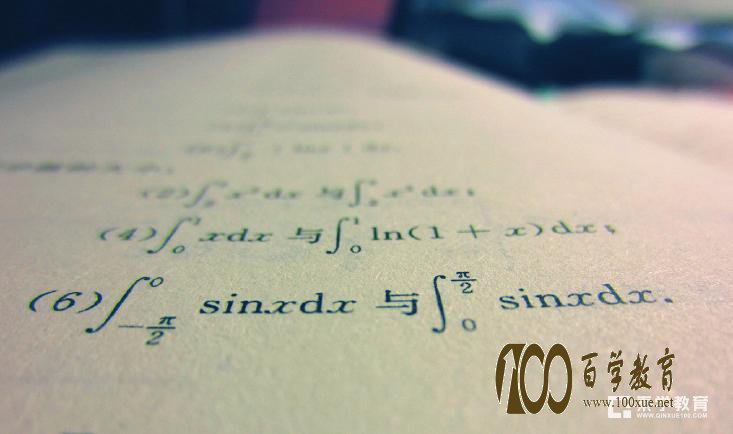 (2)∫ x²dx 与∫ x³dx;
(4)∫₀¹ xdx 与∫₀¹ ln(1 + x)dx;
(6)∫₋π/2⁰ sinxdx 与∫₀^π/2 sinxdx.
100 百学教育
www.100xue.net
亲学教育
WWW.QINXUE100.COM